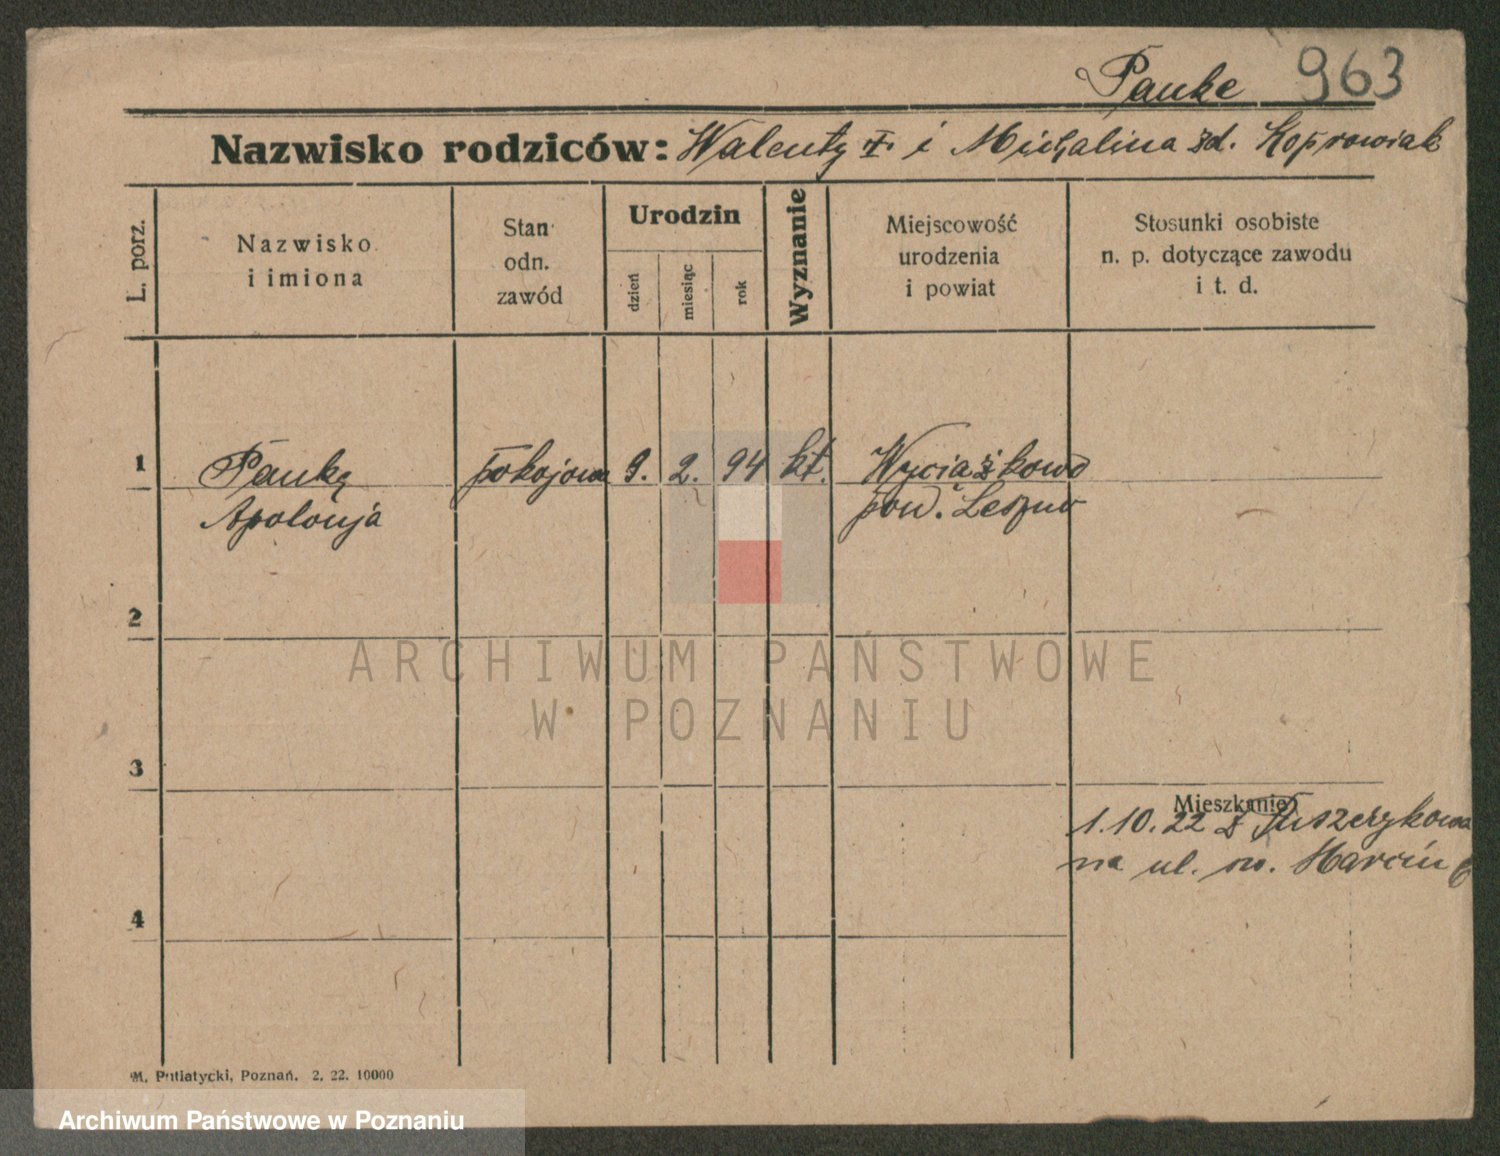 Pauke 963
Nazwisko rodziców: Walenty i Michalina zd. Koprowiak
L. porz.
Nazwisko
i imiona
Stan
odn.
zawód
Urodzin
dzień
miesiąc
rok
Wyznanie
Miejscowość
urodzenia
i powiat
Stosunki osobiste
n. p. dotyczące zawodu
i t. d.
1 Pauke pokojowa 9. 2. 94 kt. Wyciążkowo
Apolonja pow. Leszno
2
ARCHIWUM PAŃSTWOWE
W POZNANIU
3
Mieszkanie
1.10.22 z Puszczykowa
na ul. św. Marcin
4
M. Putiatycki, Poznań. 2. 22. 10000
Archiwum Państwowe w Poznaniu